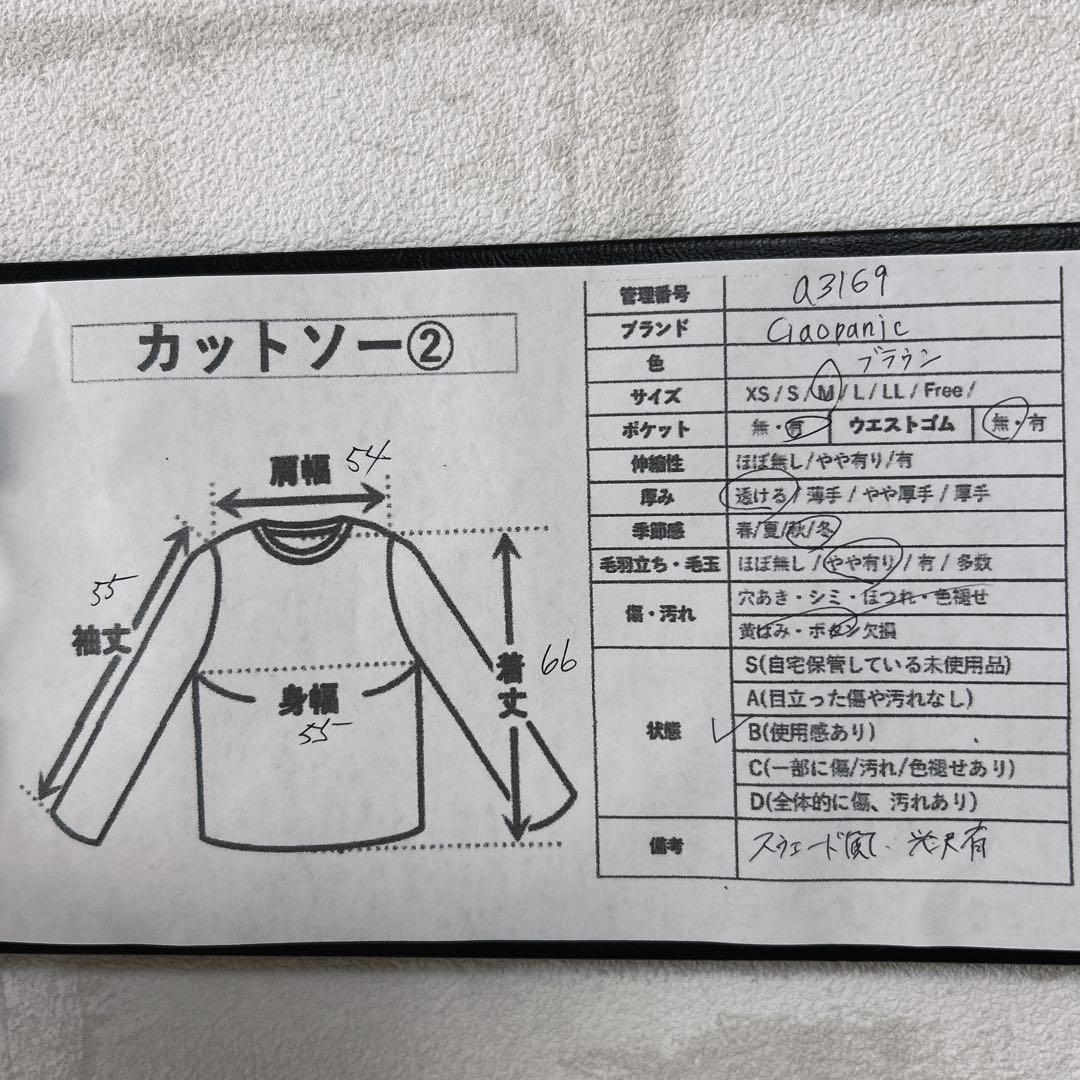 カットソー②
肩幅 54
55
袖丈
身幅
55
着丈 66
管理番号 a3169
ブランド Ciaopanic
色 ブラウン
サイズ XS / S / M / L / LL / Free /
ポケット 無・有 ウエストゴム 無・有
伸縮性 ほぼ無し/やや有り/有
厚み 透ける / 薄手 / やや厚手 / 厚手
季節感 春/夏/秋/冬
毛羽立ち・毛玉 ほぼ無し / やや有り / 有 / 多数
傷・汚れ 穴あき・シミ・ほつれ・色褪せ
黄ばみ・ボタン欠損
状態 S(自宅保管している未使用品)
A(目立った傷や汚れなし)
B(使用感あり)
C(一部に傷/汚れ/色褪せあり)
D(全体的に傷、汚れあり)
備考 スウェード風、光沢有